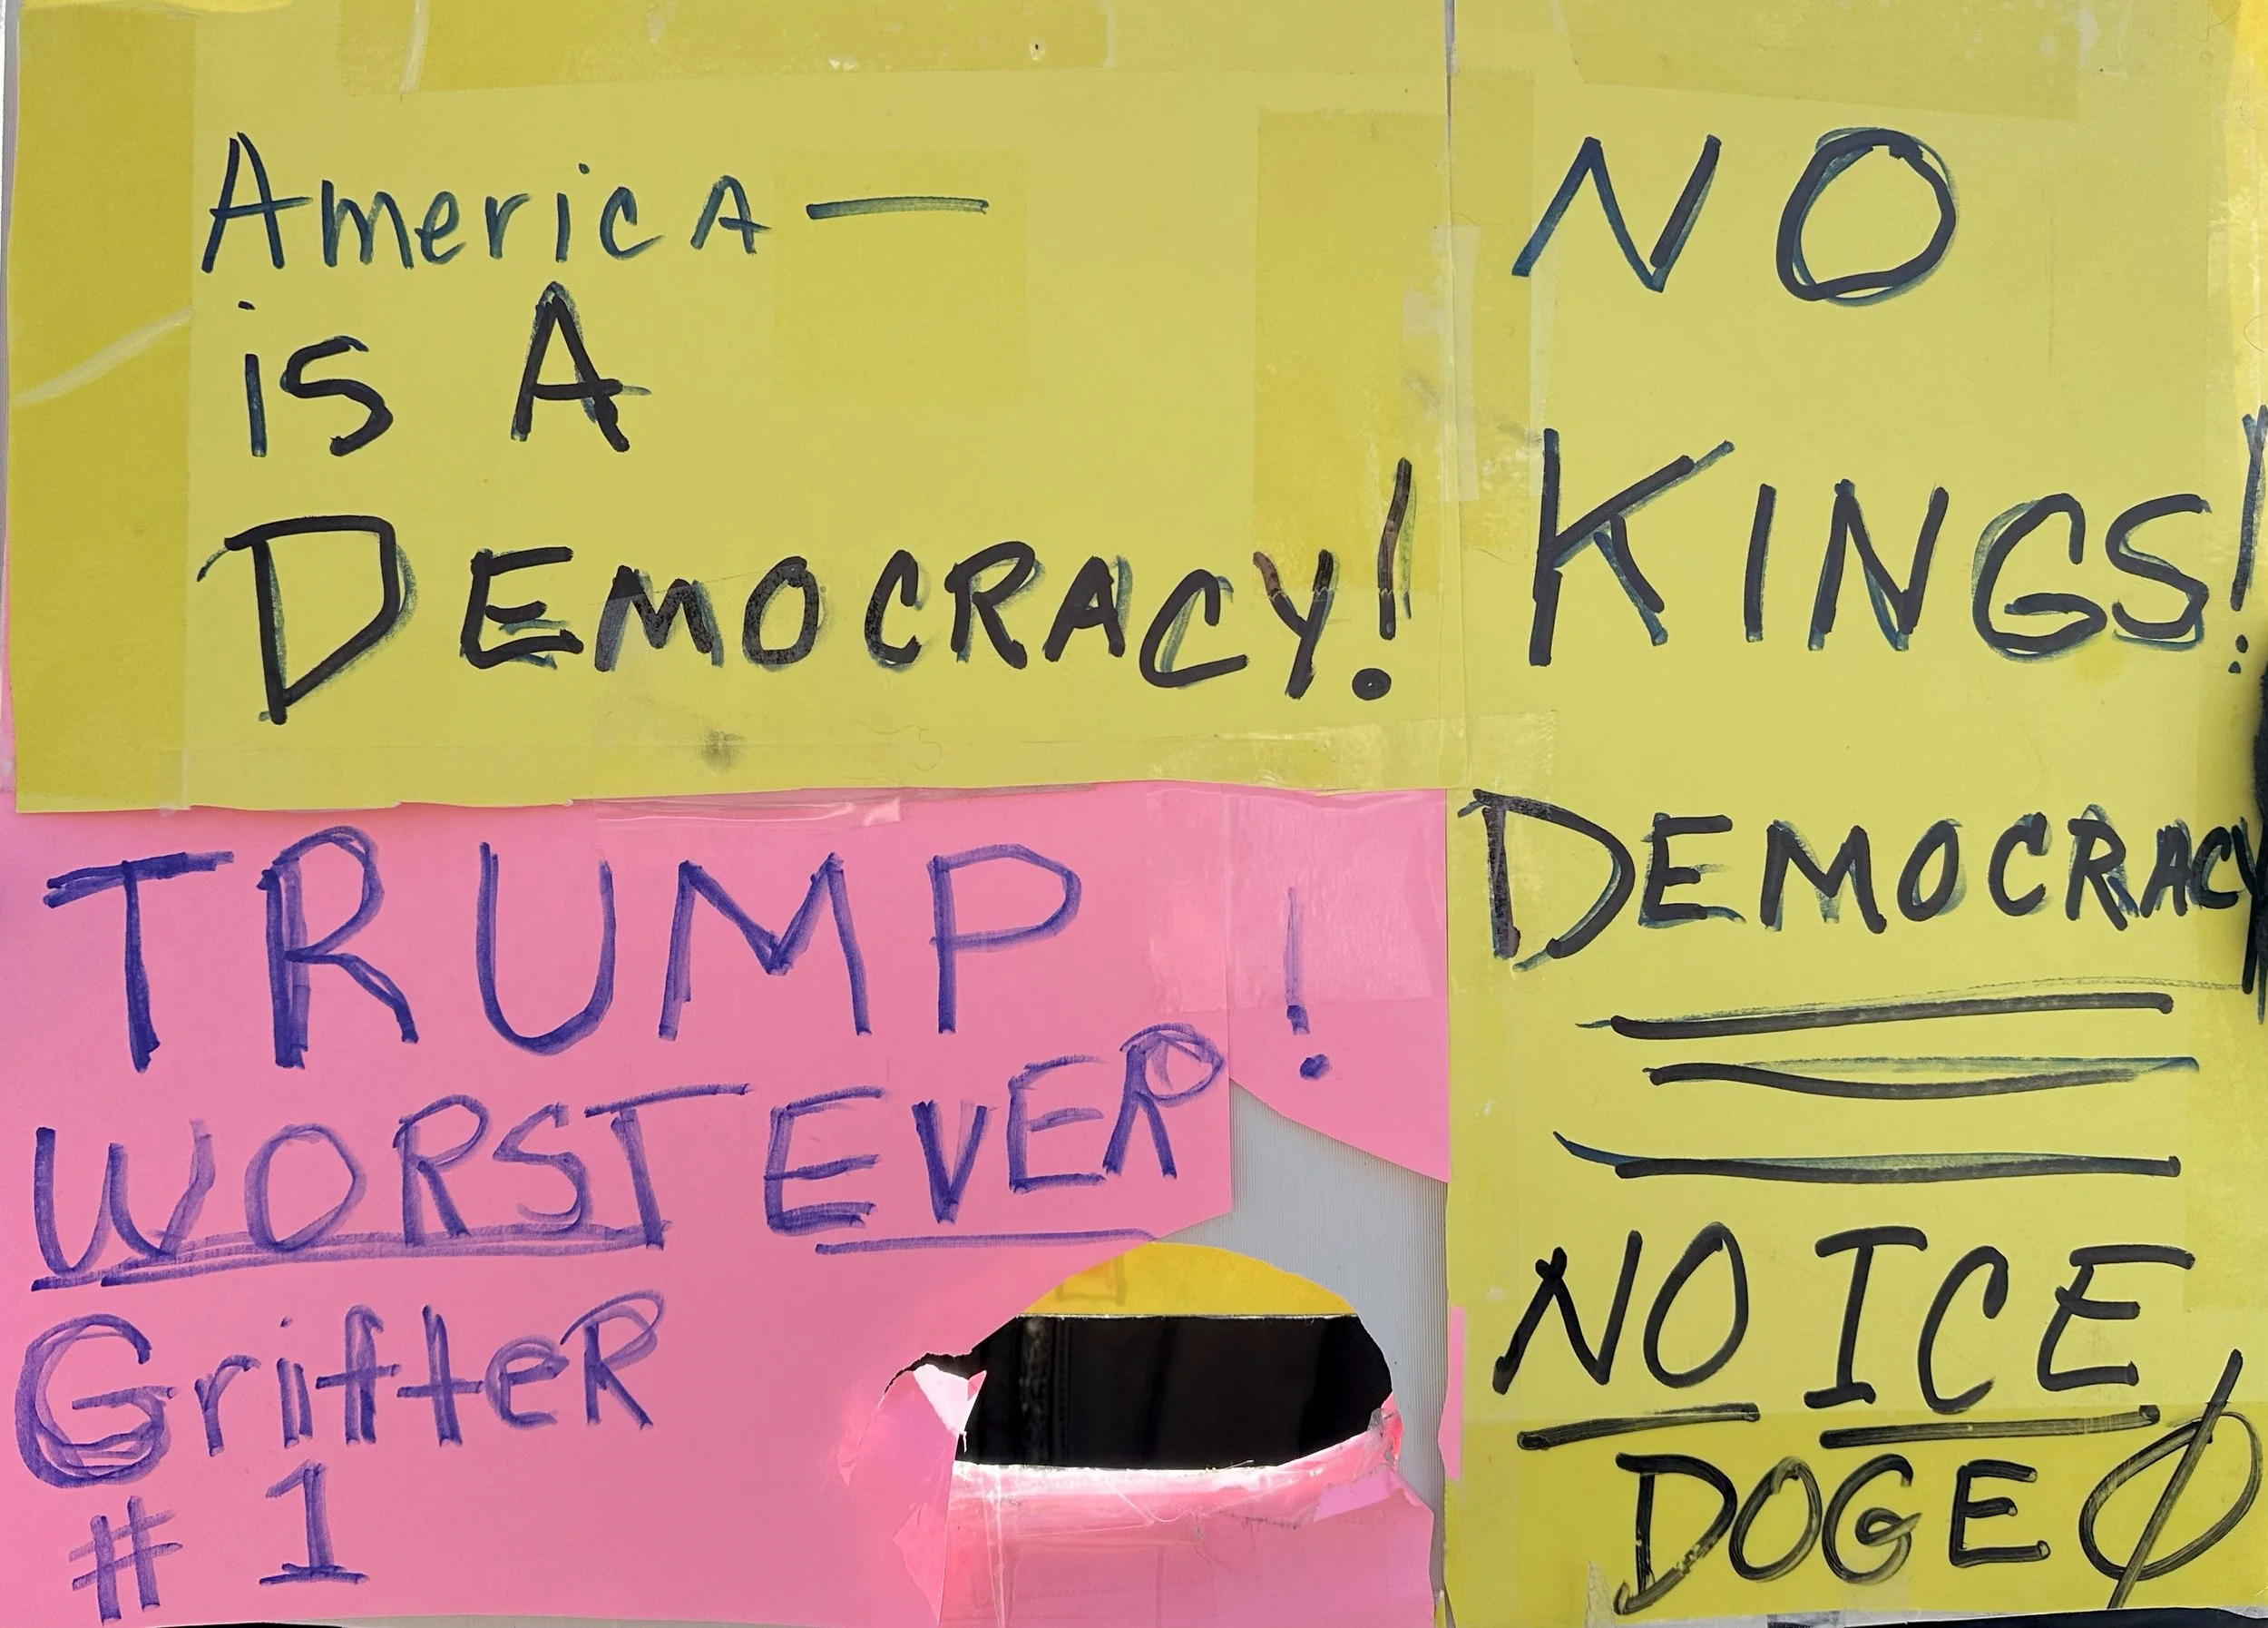 AmericA —
is A
DEMOCRACY!
TRUMP!
WORST EVER
GrifteR
# 1
NO
KINGS!
DEMOCRACY
NO ICE
DOGE Ø